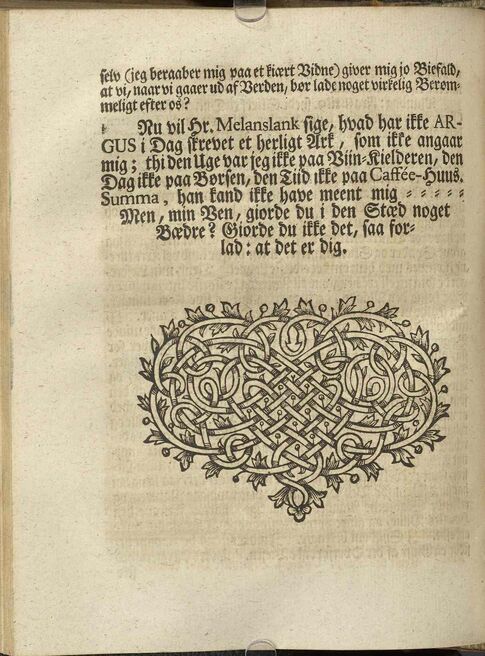 selv (jeg beraaber mig paa et kiært Vidne) giver mig jo Biefald,
at vi, naar vi gaaer ud af Verden, bør lade noget virkelig Berøm-
meligt efter os?
Nu vil Hr. Melanslank sige, hvad har ikke AR-
GUS i Dag skrevet et herligt Ark, som ikke angaar
mig; thi den Uge var jeg ikke paa Viin-Kielderen, den
Dag ikke paa Børsen, den Tiid ikke paa Caffée-Huus.
Summa, han kand ikke have meent mig - - - - -
Men, min Ven, giorde du i den Stæd noget
Bædre? Giorde du ikke det, saa for-
lad: at det er dig.